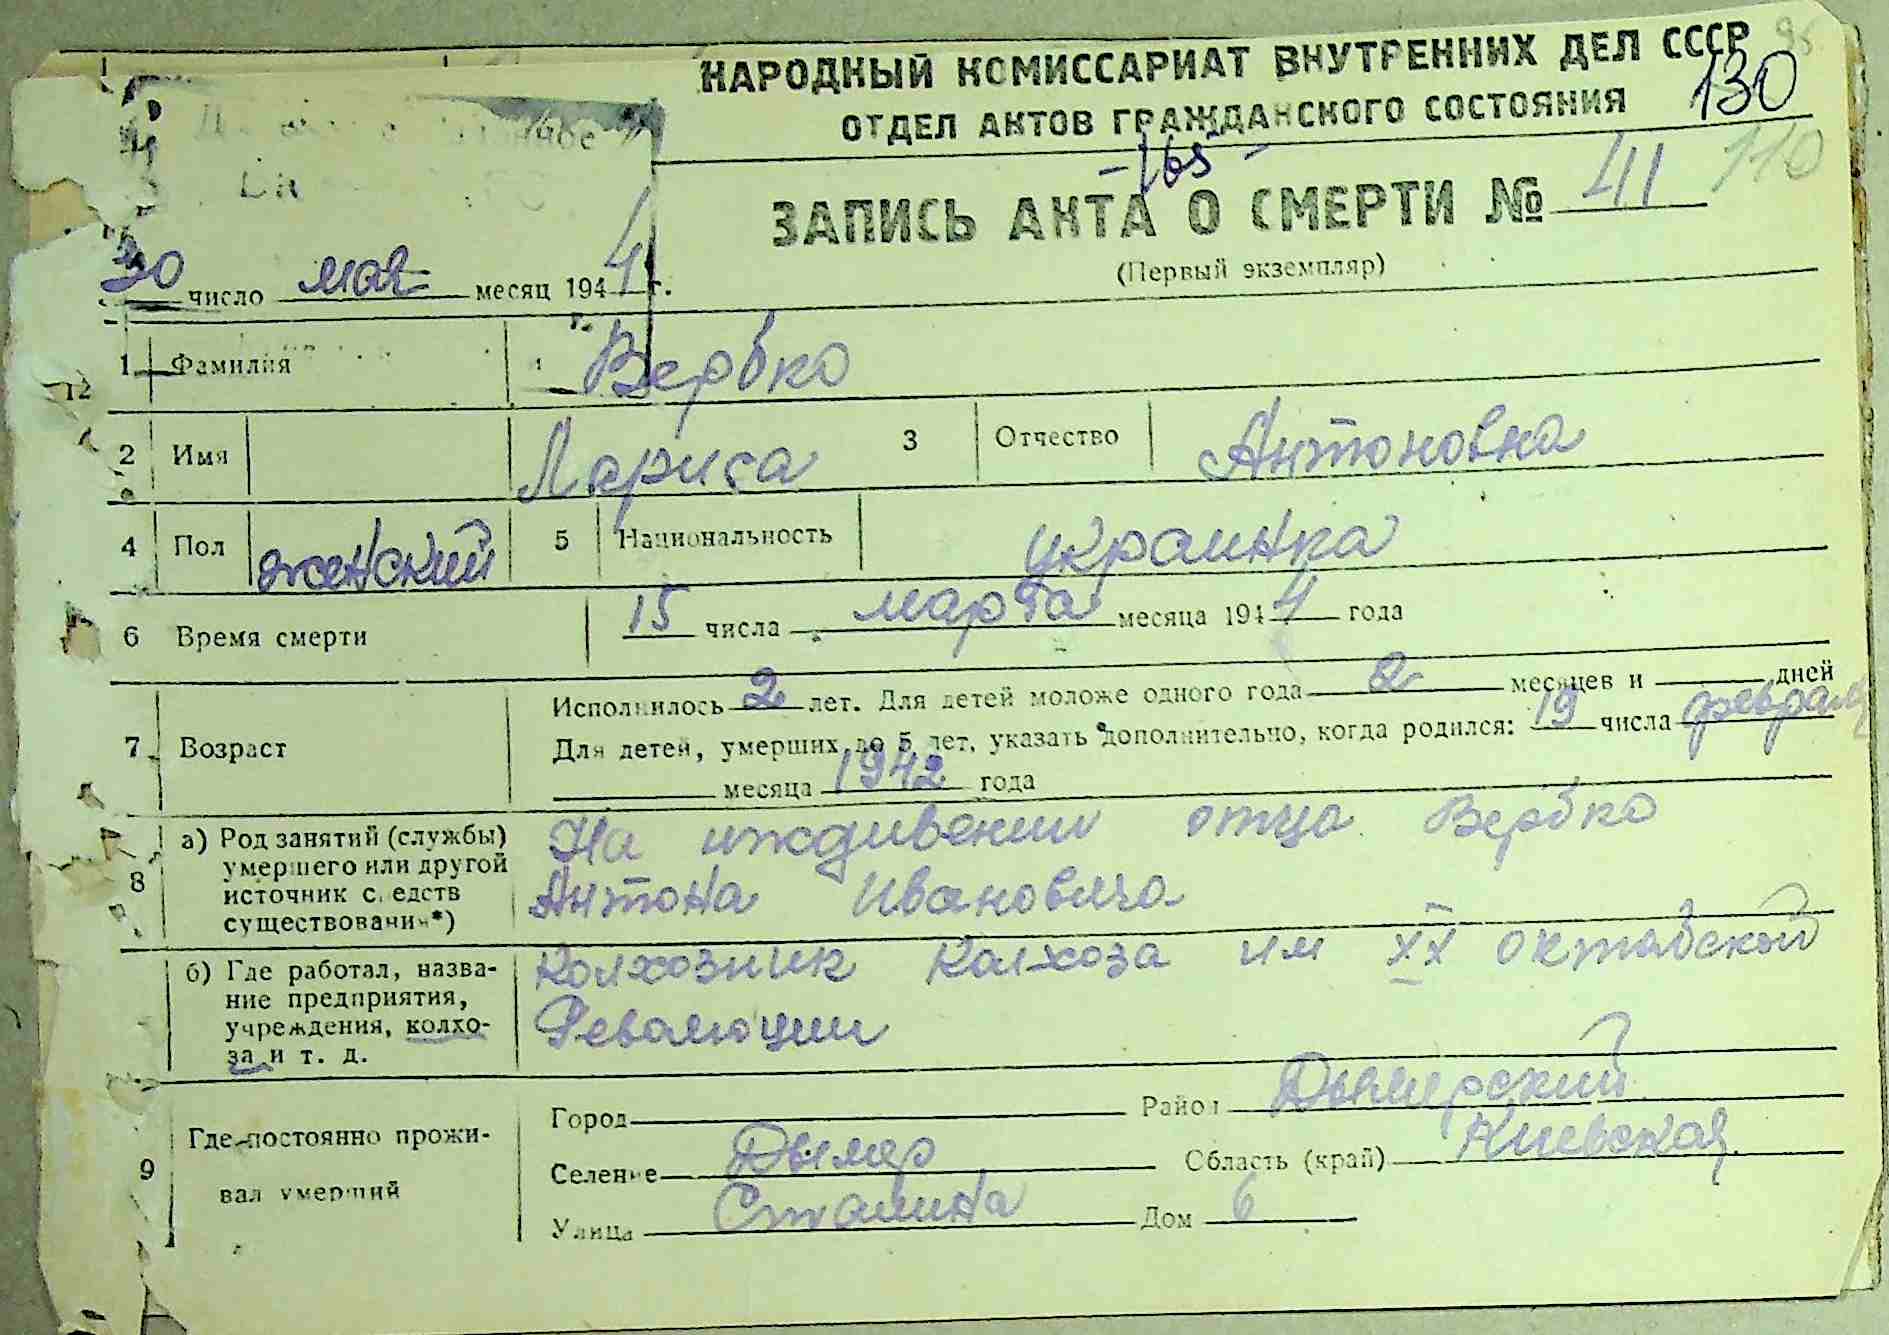 НАРОДНЫЙ КОМИССАРИАТ ВНУТРЕННИХ ДЕЛ СССР
130
ОТДЕЛ АКТОВ ГРАЖДАНСКОГО СОСТОЯНИЯ
-165-
110
ЗАПИСЬ АКТА О СМЕРТИ № 411
(Первый экземпляр)
30 число мая месяц 1944 г.
1 Фамилия Вербко
12
2 Имя Лариса 3 Отчество Антоновна
4 Пол женский 5 Национальность украинка
6 Время смерти 15 числа марта месяца 1944 года
7 Возраст Исполнилось 2 лет. Для детей моложе одного года 2 месяцев и дней
Для детей, умерших до 5 лет, указать дополнительно, когда родился: 19 числа февраля
месяца 1942 года
8 а) Род занятий (службы) умершего или другой источник средств существования*) На иждивении отца Вербко
Антона Ивановича
б) Где работал, название предприятия, учреждения, колхоза и т. д. Колхозник Колхоза им XX октябской
Революции
9 Где постоянно проживал умерший Город Район Дымерский
Селение Дымер Область (край) Киевская
Улица Сталина Дом 6